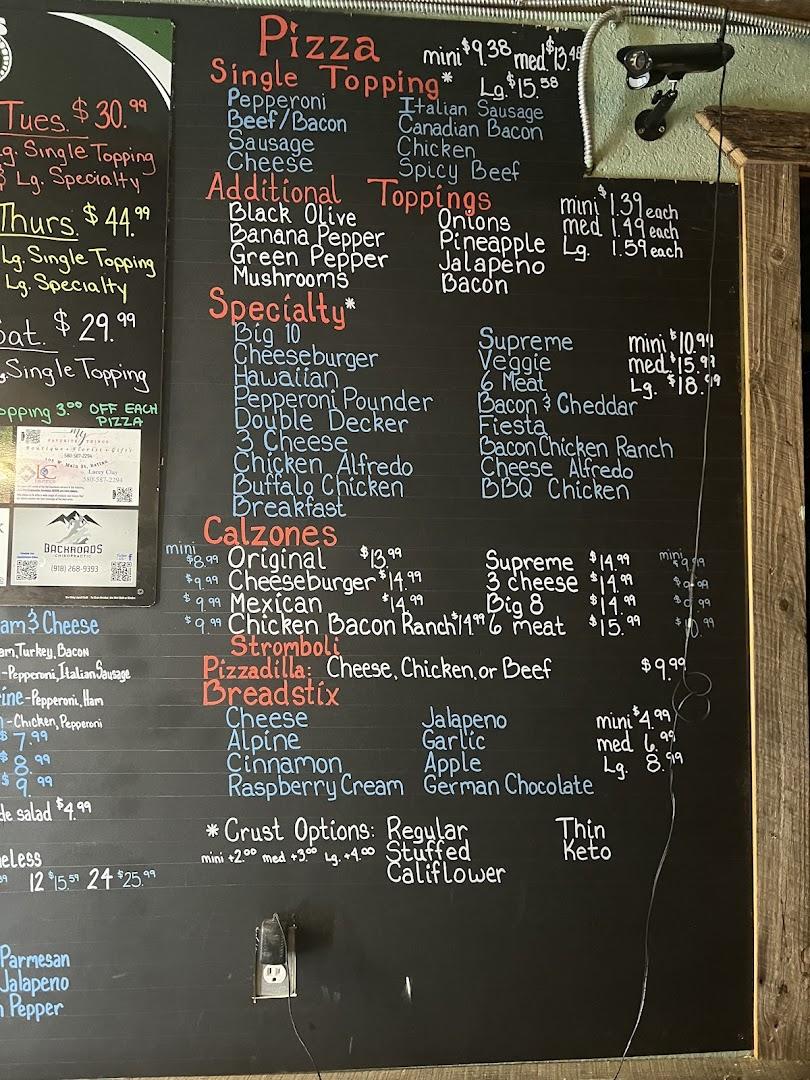 Pizza mini $9.38 med $13.48
Single Topping* Lg. $15.58
Pepperoni Italian Sausage
Beef/Bacon Canadian Bacon
Sausage Chicken
Cheese Spicy Beef
Additional Toppings
Black Olive Onions mini $1.39 each
Banana Pepper Pineapple med 1.49 each
Green Pepper Jalapeno Lg. 1.59 each
Mushrooms Bacon
Specialty*
Big 10 Supreme mini $10.99
Cheeseburger Veggie med. $15.99
Hawaiian 6 Meat Lg. $18.99
Pepperoni Pounder Bacon & Cheddar
Double Decker Fiesta
3 Cheese Bacon Chicken Ranch
Chicken Alfredo Cheese Alfredo
Buffalo Chicken BBQ Chicken
Breakfast
Calzones
mini mini
$8.99 Original $13.99 Supreme $14.99 $9.99
$9.99 Cheeseburger $14.99 3 cheese $14.99
$9.99 Mexican $14.99 Big 8 $14.99
$9.99 Chicken Bacon Ranch $14.99 6 meat $15.99 $10.99
Stromboli
Pizzadilla: Cheese, Chicken, or Beef $9.99
Breadstix
Cheese Jalapeno mini $4.99
Alpine Garlic med 6.99
Cinnamon Apple Lg. 8.99
Raspberry Cream German Chocolate
* Crust Options: Regular Thin
mini +2.00 med +3.00 Lg. +4.00 Stuffed Keto
Califlower
Tues. $30.99
g. Single Topping
Lg. Specialty
Thurs. $44.99
Lg. Single Topping
Lg. Specialty
Sat. $29.99
. Single Topping
opping 3.00 OFF EACH
PIZZA
My
FAVORITE THINGS
Boutique • Florist • Gifts
580-587-2294
Lacey Clay
580-587-2294
BACKROADS
CHIROPRACTIC
(918) 268-9393
am & Cheese
am, Turkey, Bacon
-Pepperoni, Italian Sausage
ine -Pepperoni, Ham
-Chicken, Pepperoni
$7.99
$8.99
$9.99
de salad $4.99
eless
12 $15.59 24 $25.99
Parmesan
Jalapeno
n Pepper